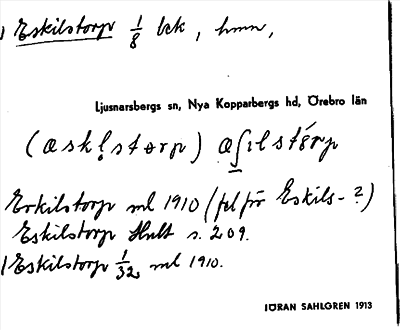 ) Eskilstorp 1/8 bek, hmn,
Ljusnarsbergs sn, Nya Kopparbergs hd, Örebro län
(æskl̥storp) æʃılstórp
Erkilstorp ml 1910 (fel för Eskils-?)
Eskilstorp Hult s. 209.
) Eskilstorp 1/32 ml 1910.
JÖRAN SAHLGREN 1913